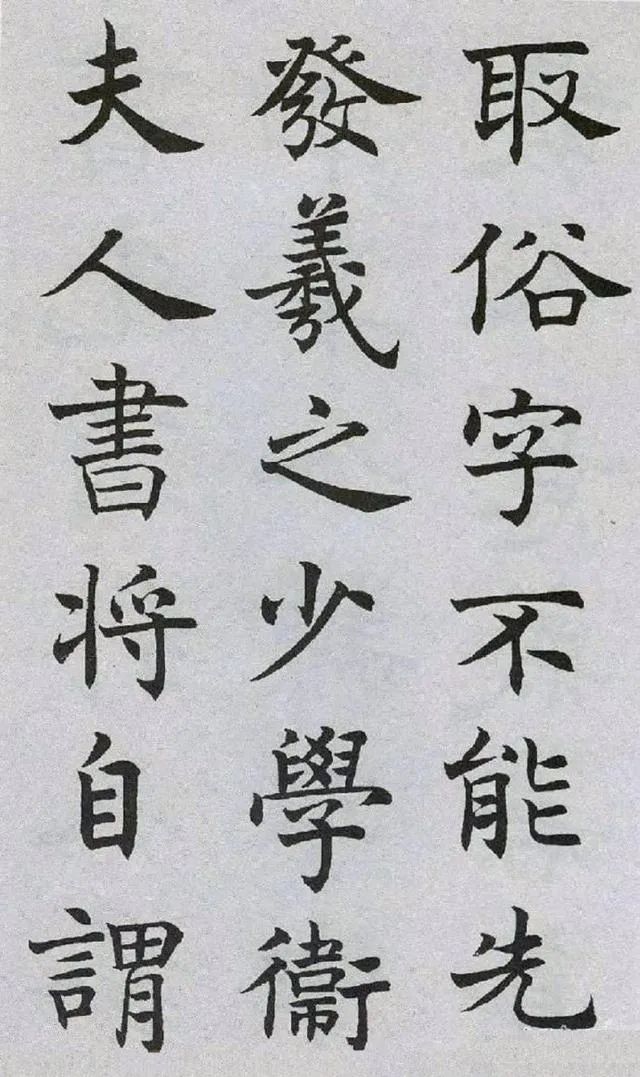 取俗字不能先
發羲之少學衞
夫人書将自謂